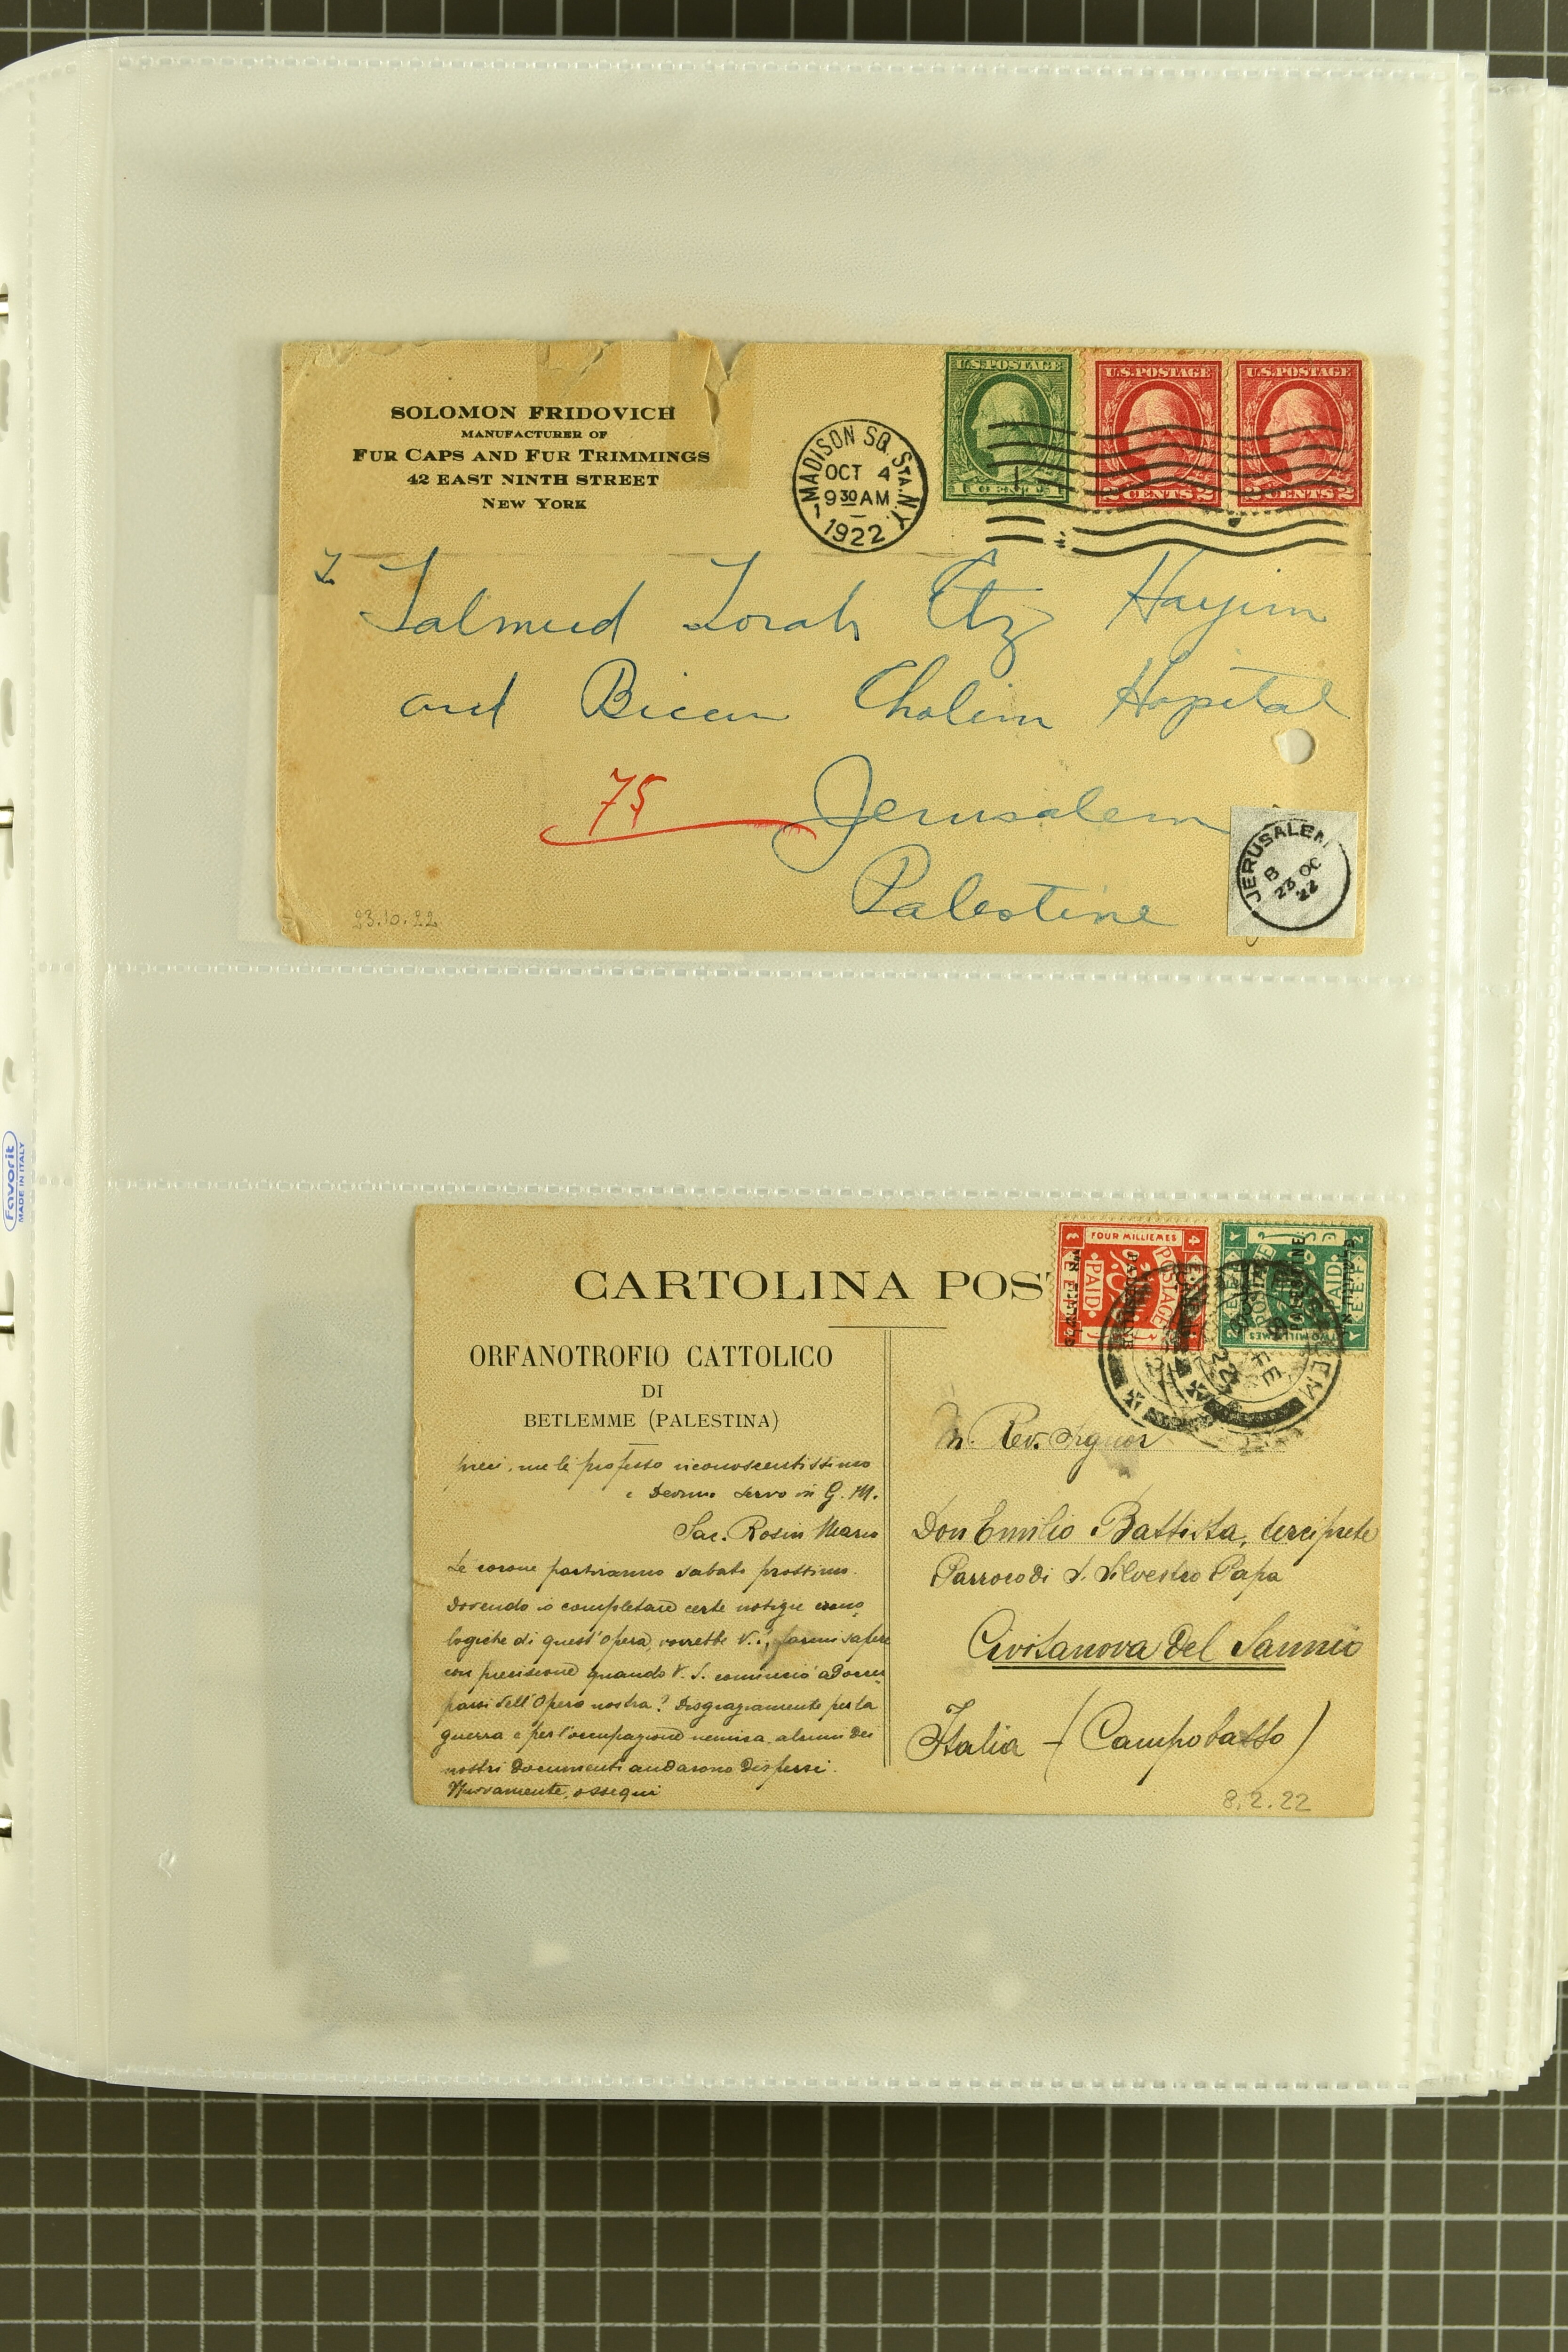 SOLOMON FRIDOVICH
MANUFACTURER OF
FUR CAPS AND FUR TRIMMINGS
42 EAST NINTH STREET
NEW YORK
MADISON SQ. STA. N.Y.
OCT 4
9 30 AM
1922
1
U.S.POSTAGE
1 CENT 1
U.S.POSTAGE
2 CENTS 2
U.S.POSTAGE
2 CENTS 2
Talmud Torah Etz Hayim
and Bicur Cholim Hospital
75
Jerusalem
Palestine
JERUSALEM
B
23 OC
22
23.10.22
Favorit
MADE IN ITALY
CARTOLINA POS
FOUR MILLIEMES
4
POSTAGE
PAID
E.E.F.
PALESTINE
TWO MILLIEMES
2
POSTAGE
PAID
E.E.F.
PALESTINE
ORFANOTROFIO CATTOLICO
DI
BETLEMME (PALESTINA)
preci, me le professo riconoscentissimo
e Devmo servo in G. M.
Sac. Rosin Mario
Le corone partiranno sabato prossimo.
Dovendo io completare certe notizie crono
logiche di quest'Opera, vorrebbe V. S. farmi sapere
con precisione quando V. S. cominciò ad occu
parsi dell'Opera nostra? Disgraziamente per la
guerra e per l'occupazione nemica, alcuni dei
nostri Documenti andarono dispersi.
Nuovamente, ossequi
M. Rev. Signor
Don Emilio Battista, Arciprete
Parroco di S. Silvestro Papa
Civitanova del Sannio
Italia - (Campobasso)
8.2.22